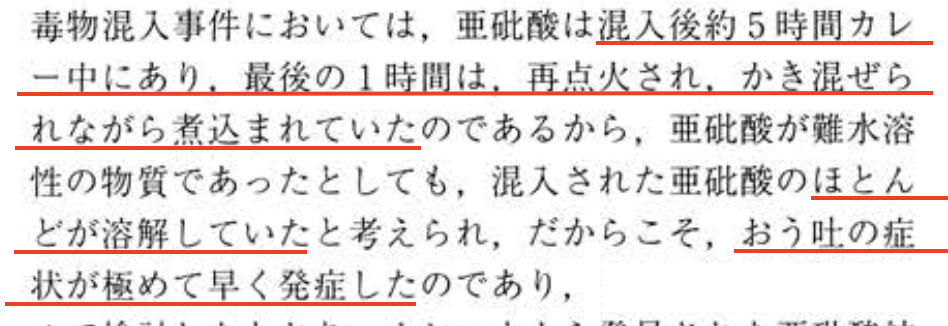 毒物混入事件においては，亜砒酸は混入後約5時間カレ
ー中にあり，最後の1時間は，再点火され，かき混ぜら
れながら煮込まれていたのであるから，亜砒酸が難水溶
性の物質であったとしても，混入された亜砒酸のほとん
どが溶解していたと考えられ，だからこそ，おう吐の症
状が極めて早く発症したのであり，